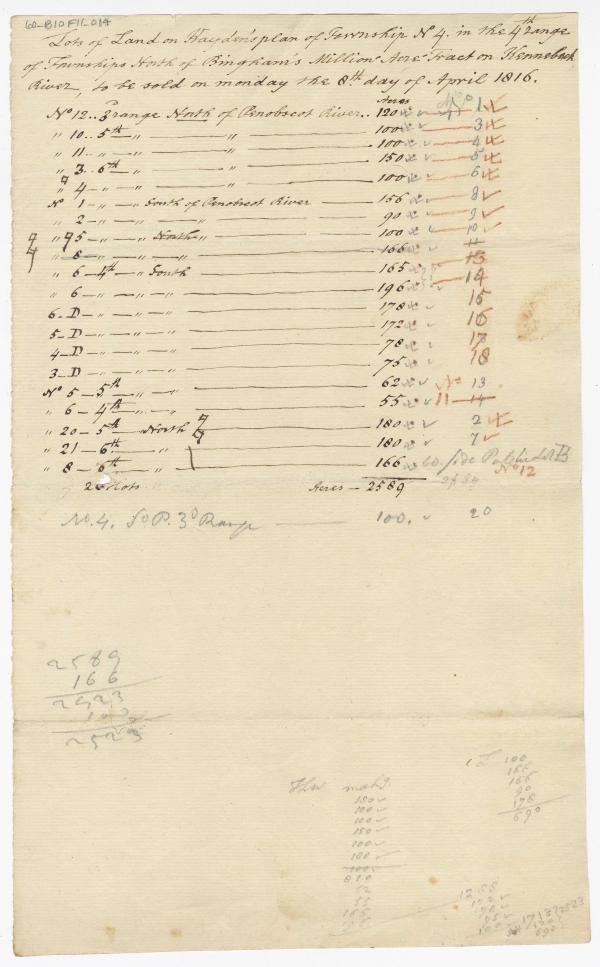 60-B10 F11-014
Lots of Land on Hayden's plan of Township No 4. in the 4th range
of Townships North of Bingham's Million Acre Tract on Kennebeck
River, to be sold on monday the 8th day of April 1816.
Acres
No 12.. 3d range North of Penobscot River.. 120 1
" 10.. 5th " " 100 3
" 11.. " " " 100 4
" 3.. 6th " " 150 5
" 4 - " " " 100 6
No 1 - " South of Penobscot River 156 8
" 2 - " " " 90 9
" 5 - " North " 100 10
" 8 - " " " 166 11
" 6 - 4th " South 165 13
" 6 - " " " 196 14
6 - D - " " " 178 15
5 - D - " " " 172 16
4 - D - " " " 78 17
3 - D - " " " 75 18
No 5 - 5th " " 62 No 13
" 6 - 4th " " 55 11 14
" 20 - 5th North 180 2
" 21 - 6th " 180 7
" 8 - 6th " 166 B
No 12
Lots Acres - 2589
No. 4. So P. 3d Range 100. 20
2589
166
2423
2523
100
166
166
90
178
690
150
100
100
150
100
180
810